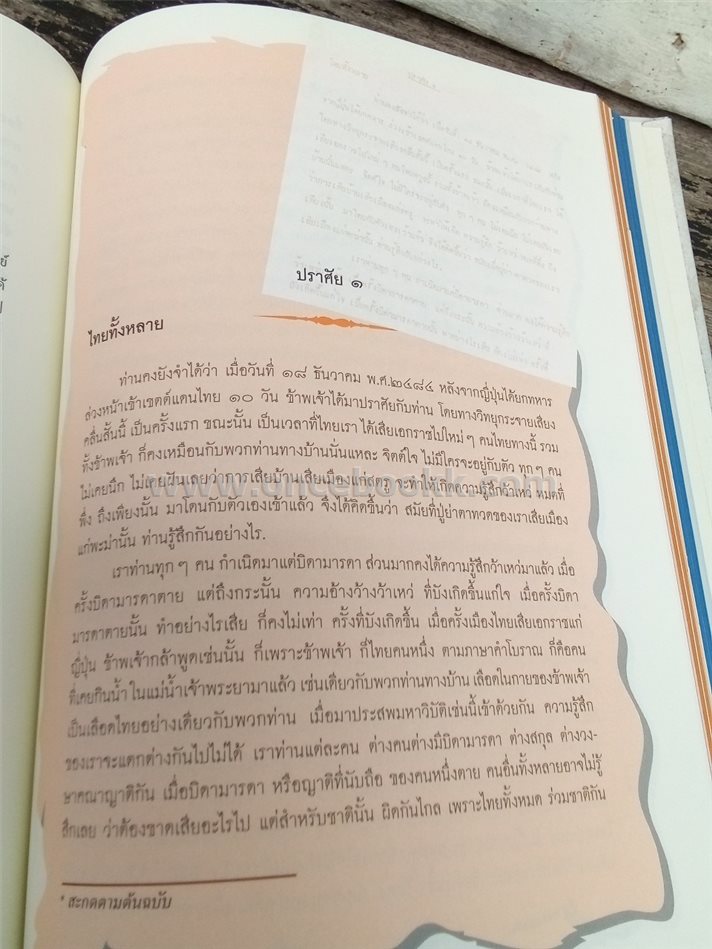 ปราศัย ๑
ไทยทั้งหลาย
ท่านคงยังจำได้ว่า เมื่อวันที่ ๑๘ ธันวาคม พ.ศ.๒๔๘๔ หลังจากญี่ปุ่นได้ยกทหาร
ล่วงหน้าเข้าเขตต์แดนไทย ๑๐ วัน ข้าพเจ้าได้มาปราศัยกับท่าน โดยทางวิทยุกระจายเสียง
คลื่นสั้นนี้ เป็นครั้งแรก ขณะนั้น เป็นเวลาที่ไทยเรา ได้เสียเอกราชไปใหม่ๆ คนไทยทางนี้ รวม
ทั้งข้าพเจ้า ก็คงเหมือนกับพวกท่านทางบ้านนั่นแหละ จิตต์ใจ ไม่มีใครจะอยู่กับตัว ทุกๆ คน
ไม่เคยนึก ไม่เคยฝันเลยว่าการเสียบ้านเสียเมืองแก่สตรู จะทำให้เกิดความรู้สึกว้าเหว่ หมดที่
พึ่ง ถึงเพียงนั้น มาโดนกับตัวเองเข้าแล้ว จึงได้คิดขึ้นว่า สมัยที่ปู่ย่าตาทวดของเราเสียเมือง
แก่พะม่านั้น ท่านรู้สึกกันอย่างไร.
เราท่านทุกๆ คน กำเนิดมาแต่บิดามารดา ส่วนมากคงได้ความรู้สึกว้าเหว่มาแล้ว เมื่อ
ครั้งบิดามารดาตาย แต่ถึงกระนั้น ความอ้างว้างว้าเหว่ ที่บังเกิดขึ้นแก่ใจ เมื่อครั้งบิดา
มารดาตายนั้น ทำอย่างไรเสีย ก็คงไม่เท่า ครั้งที่บังเกิดขึ้น เมื่อครั้งเมืองไทยเสียเอกราชแก่
ญี่ปุ่น ข้าพเจ้ากล้าพูดเช่นนั้น ก็เพราะข้าพเจ้า ก็ไทยคนหนึ่ง ตามภาษาคำโบราณ ก็คือคน
ที่เคยกินน้ำ ในแม่น้ำเจ้าพระยามาแล้ว เช่นเดียวกับพวกท่านทางบ้าน เลือดในกายของข้าพเจ้า
เป็นเลือดไทยอย่างเดียวกับพวกท่าน เมื่อมาประสพมหาวิบัติเช่นนี้เข้าด้วยกัน ความรู้สึก
ของเราจะแตกต่างกันไปไม่ได้ เราท่านแต่ละคน ต่างคนต่างมีบิดามารดา ต่างสกุล ต่างวง-
ษาคณาญาติกัน เมื่อบิดามารดา หรือญาติที่นับถือ ของคนหนึ่งตาย คนอื่นทั้งหลายอาจไม่รู้
สึกเลย ว่าต้องขาดเสียอะไรไป แต่สำหรับชาตินั้น ผิดกันไกล เพราะไทยทั้งหมด ร่วมชาติกัน
* สะกดตามต้นฉบับ